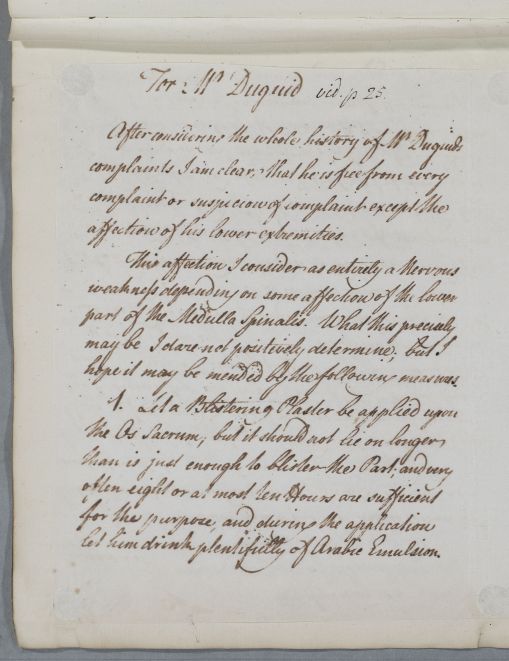 For Mr Duguid vid. p 25.
After considering the whole history of Mr Duguids
complaints I am clear, that he is free from every
complaint or suspicion of complaint except the
affection of his lower extremities.
This affection I consider as entirely a Nervous
weakness depending on some affection of the lower
part of the Medulla Spinalis. What this precisely
may be I dare not positively determine; but I
hope it may be mended by the following measures.
1. Let a Blistering Plaster be applied upon
the Os Sacrum; but it should not lie on longer
than is just enough to blister the Part; and very
often eight or at most ten Hours are sufficient
for the purpose, and during the application
let him drink plentifully of Arabic Emulsion.